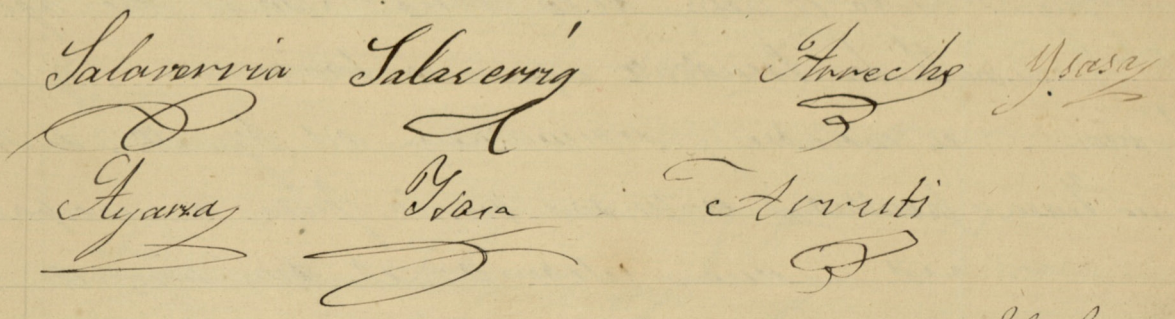 Salaverria Salaverria Arreche Ysasa
Ayarza Ysasa Arruti